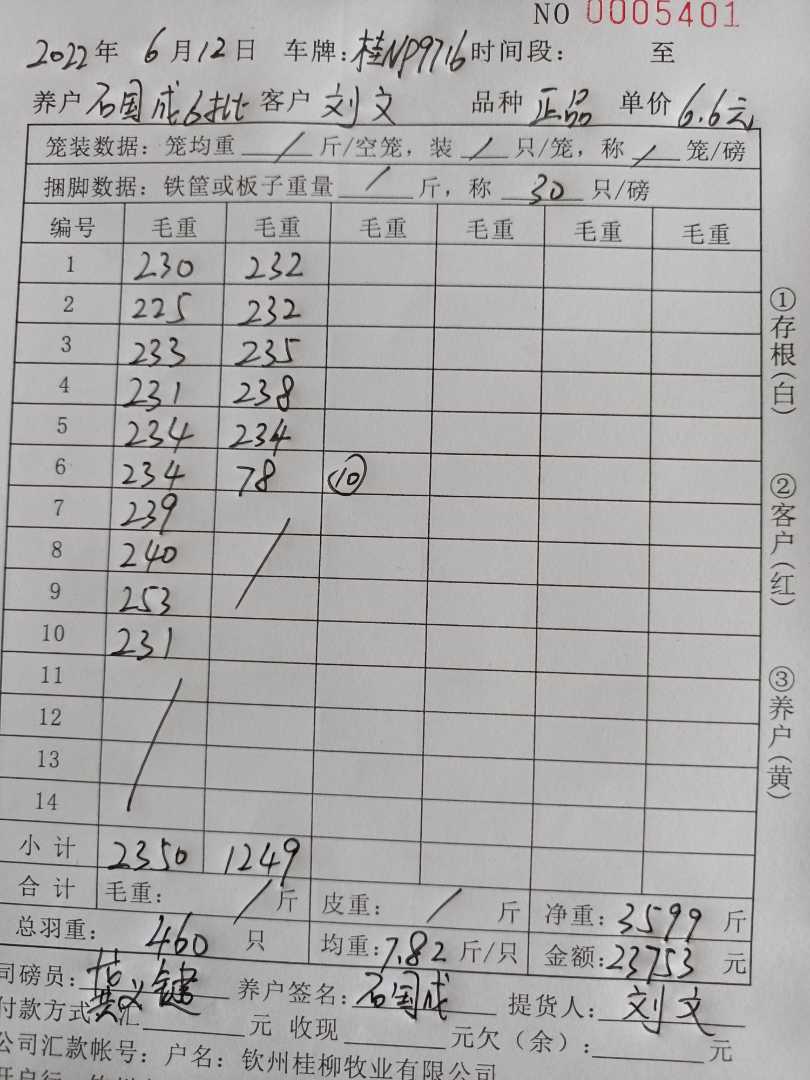 NO 0005401
2022年 6月12日 车牌:桂NP9716 时间段: 至
养户 石国成6批 客户 刘文 品种 正品 单价 6.6元
笼装数据: 笼均重 / 斤/空笼, 装 / 只/笼, 称 / 笼/磅
捆脚数据: 铁筐或板子重量 / 斤, 称 30 只/磅
编号 毛重 毛重 毛重 毛重 毛重 毛重
1 230 232
2 225 232
3 233 235
4 231 238
5 234 234
6 234 78 ⑩
7 239
8 240
9 253
10 231
11
12
13
14
小计 2350 1249
合计 毛重: / 斤 皮重: / 斤 净重: 3599 斤
总羽重: 460 只 均重: 7.82 斤/只 金额: 23753 元
司磅员: 养户签名: 石国成 提货人: 刘文
付款方式 汇 元 收现 元欠(余): 元
公司汇款帐号: 户名: 钦州桂柳牧业有限公司
①存根(白)
②客户(红)
③养户(黄)